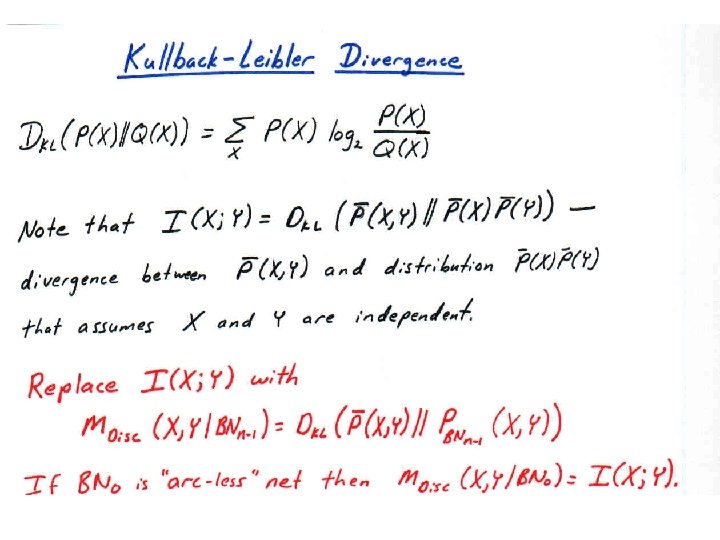 Kullback-Leibler Divergence
D_KL(P(X)||Q(X)) = Σ_X P(X) log_2 P(X)/Q(X)
Note that I(X;Y) = D_KL (P̄(X,Y) || P̄(X)P̄(Y)) —
divergence between P̄(X,Y) and distribution P̄(X)P̄(Y)
that assumes X and Y are independent.
Replace I(X;Y) with
M_Disc (X,Y|BN_n-1) = D_KL (P̄(X,Y) || P_BN_n-1 (X,Y))
If BN_0 is "arc-less" net then M_Disc (X,Y|BN_0) = I(X;Y).